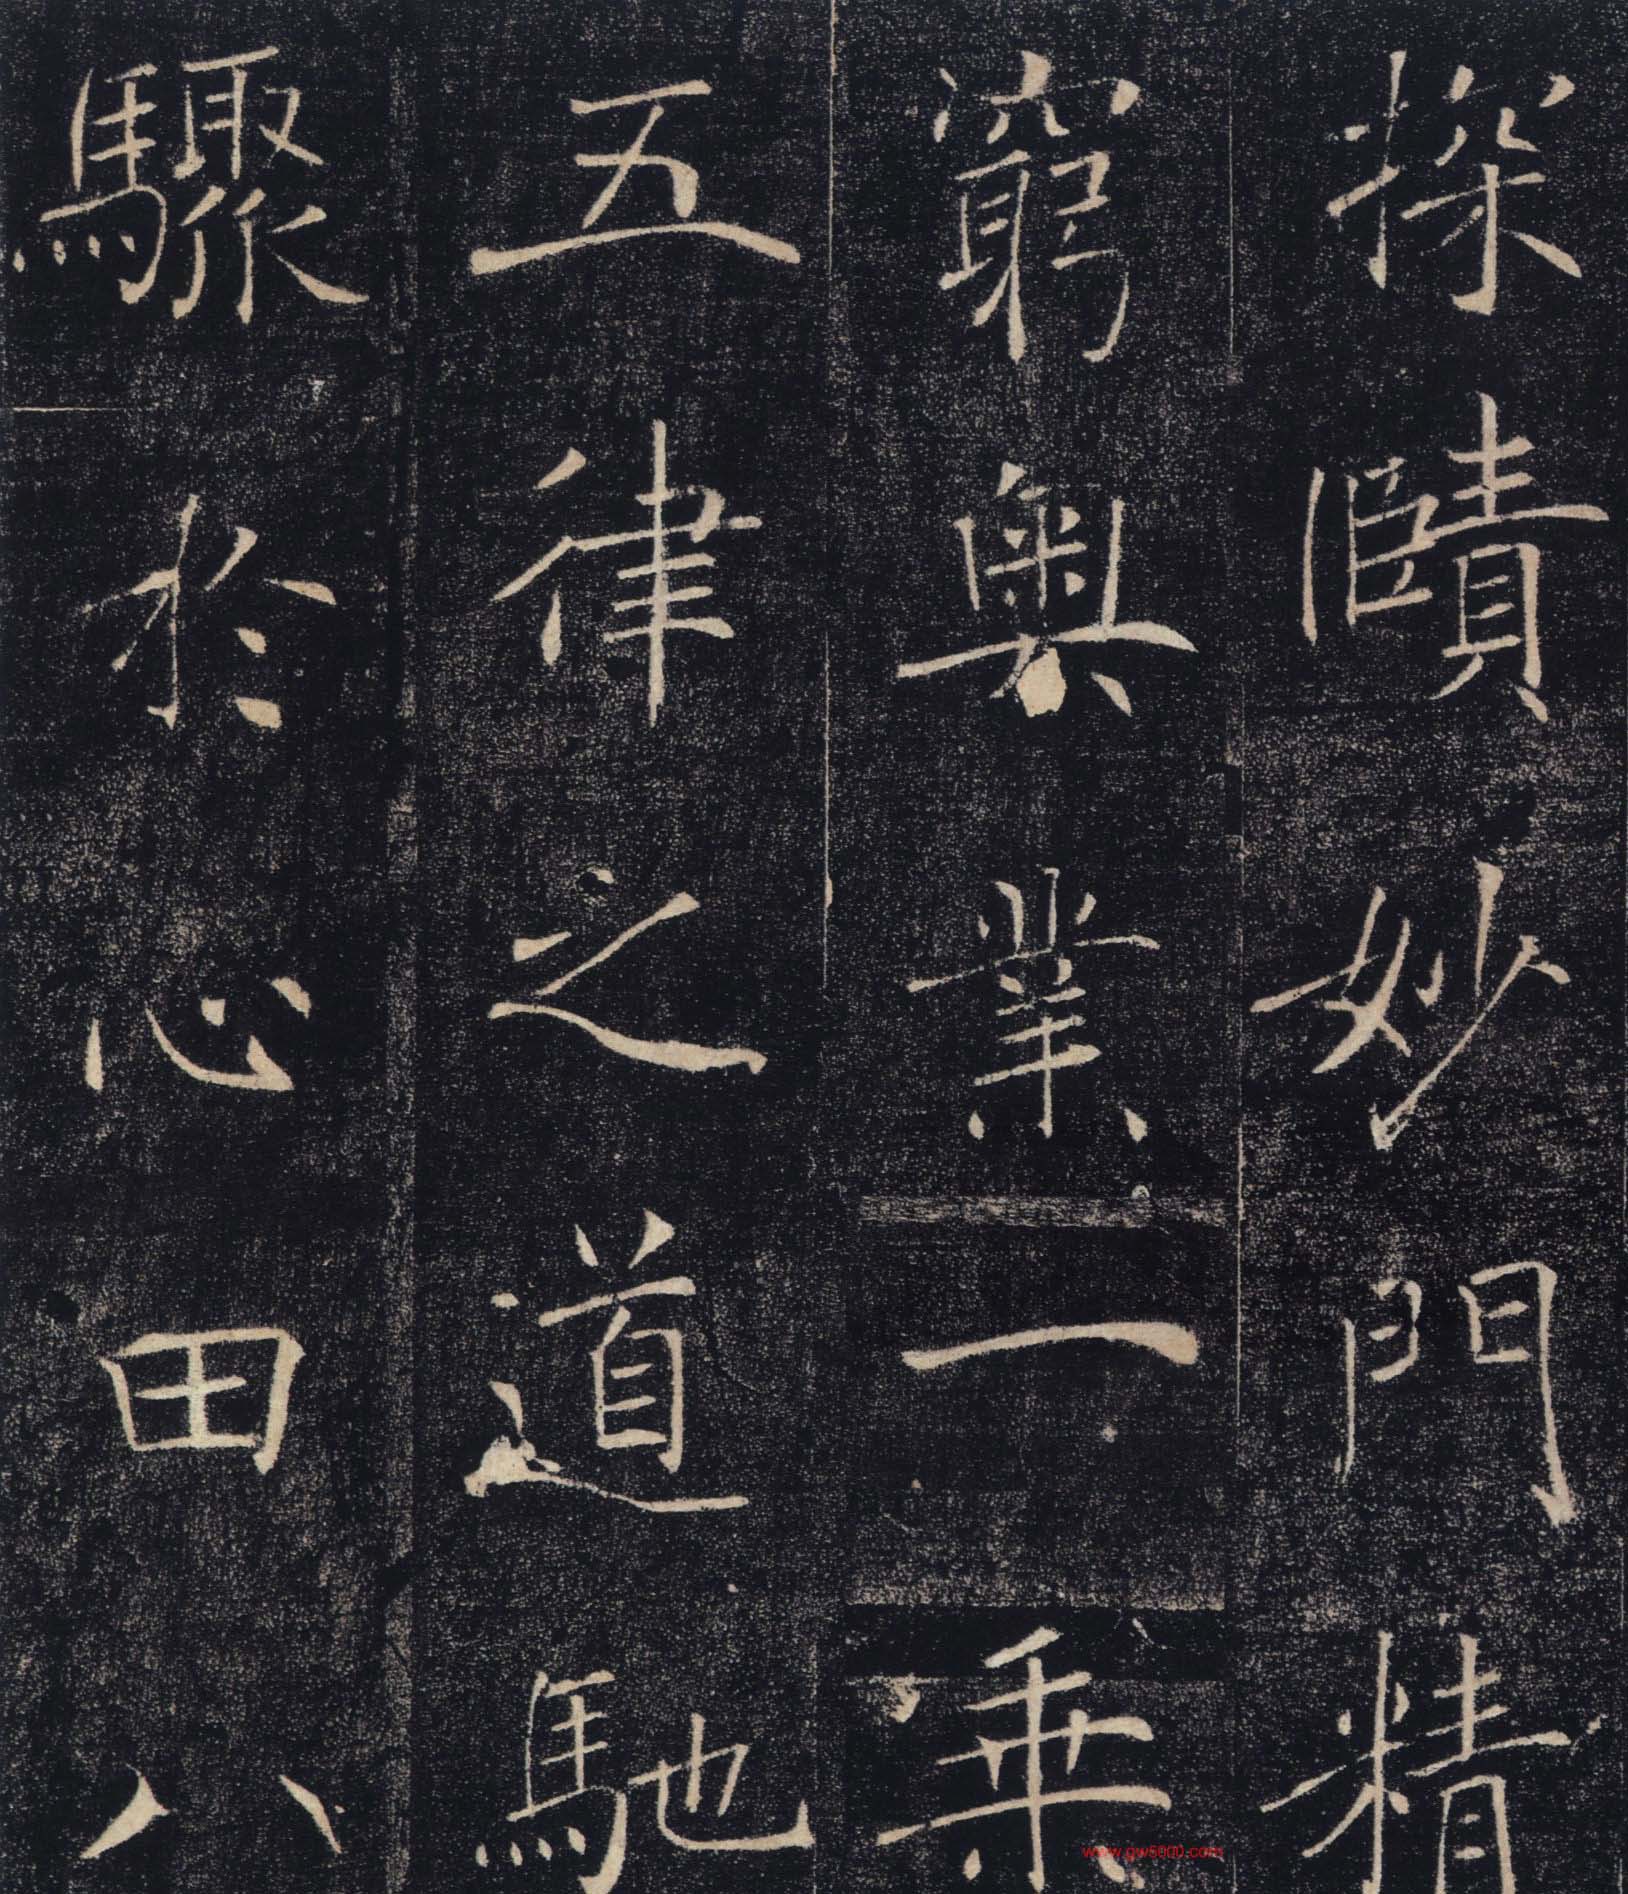 探賾妙門精
窮奧業一乘
五律之道馳
驟於心田八
www.gw5000.com